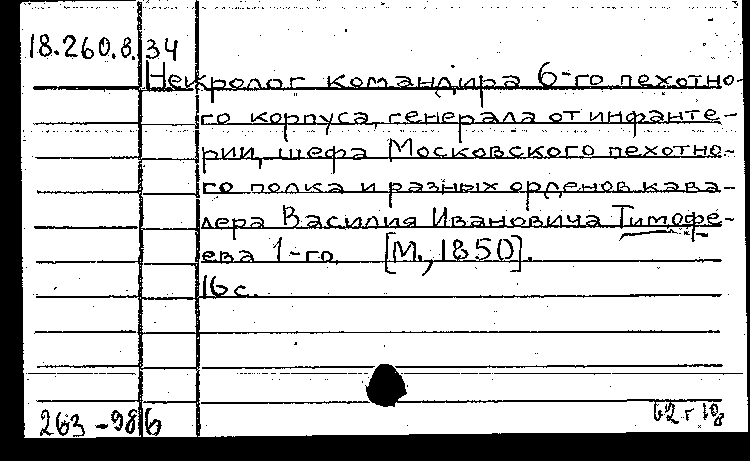 18.260.8.34
Некролог командира 6-го пехотно-
го корпуса, генерала от инфанте-
рии, шефа Московского пехотно-
го полка и разных орденов кава-
лера Василия Ивановича Тимофе-
ева 1-го. [М., 1850].
16 с.
263-986